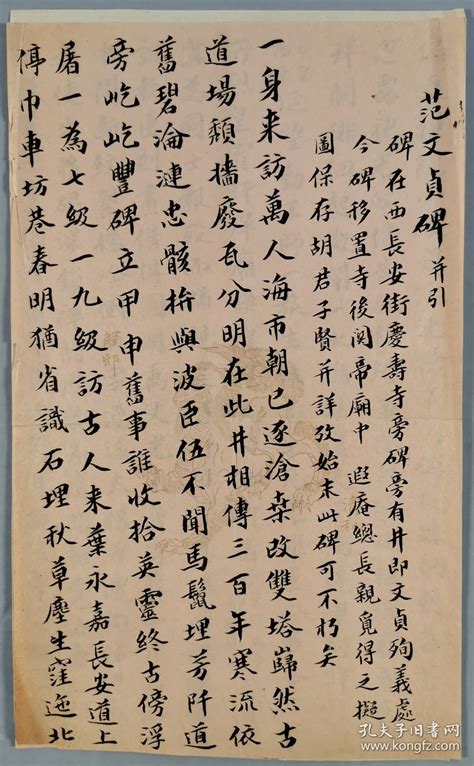 范文貞碑 并引
碑在西長安街慶壽寺旁碑旁有井即文貞殉義處
今碑移置寺後関帝廟中 遐庵總長親覓得之擬
圖保存胡君子賢并詳攷始末此碑可不朽矣
一身来訪萬人海市朝已逐滄桒改雙塔巋然古
道場頹墻廢瓦分明在此井相傳三百年寒流依
舊碧淪漣忠骸拚與波臣伍不聞馬鬛埋芳阡道
旁屹屹豐碑立甲申舊事誰收拾英靈終古傍浮
屠一為七級一九級訪古人来葉永嘉長安道上
停巾車坊巷春明猶省識石埋秋草塵生窪迤北
孔夫子旧书网
www.kongfz.com